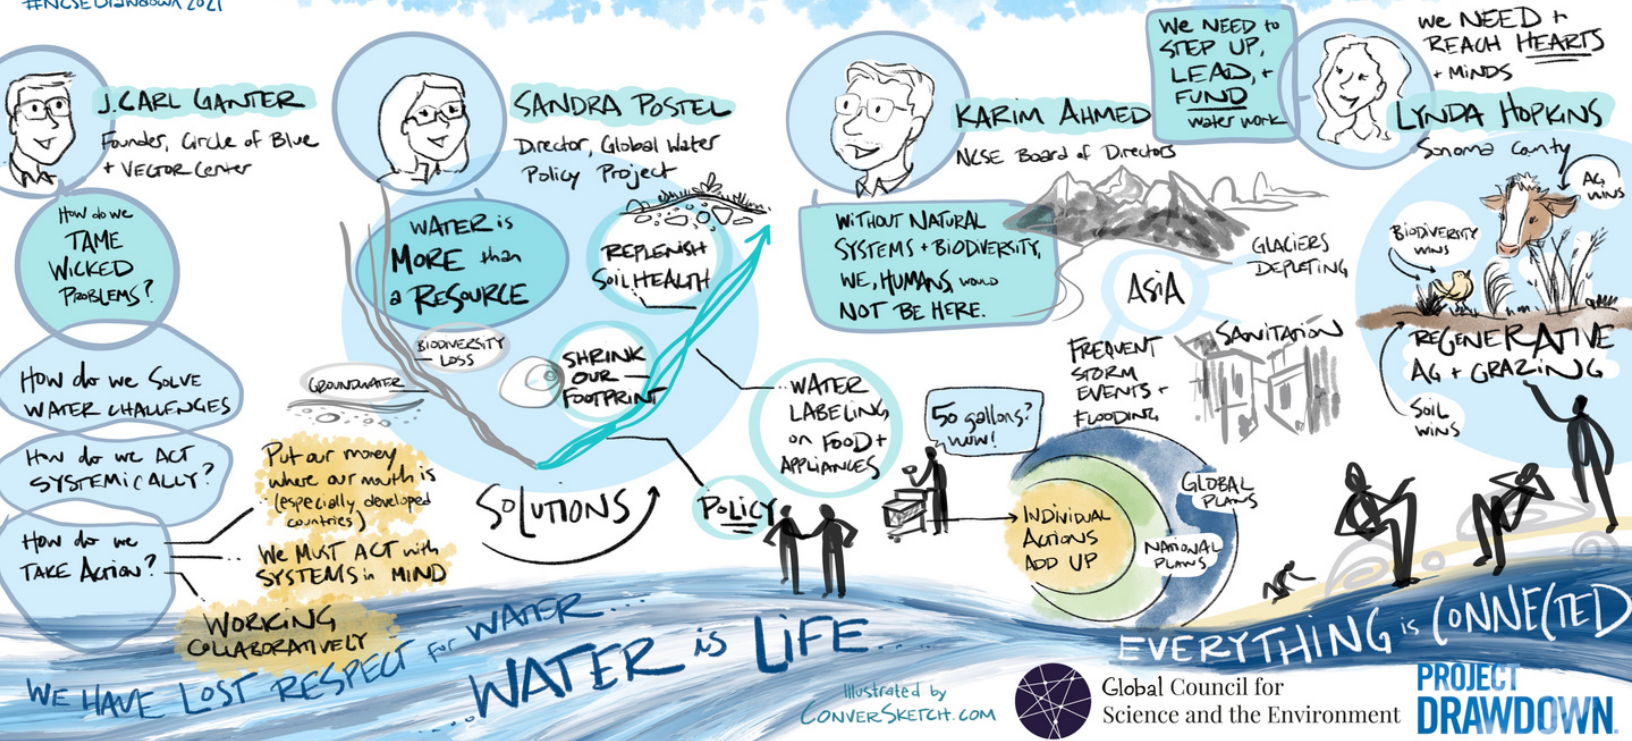 #NCSEDrawdown2021
J. CARL GANTER
Founder, Circle of Blue
+ VECTOR Center
How do we
TAME
WICKED
PROBLEMS?
How do we SOLVE
WATER CHALLENGES
How do we ACT
SYSTEMICALLY?
How do we
TAKE Action?
Put our money
where our mouth is
(especially developed
countries)
We MUST ACT with
SYSTEMS in MIND
WORKING
COLLABORATIVELY
SANDRA POSTEL
Director, Global Water
Policy Project
WATER is
MORE than
a RESOURCE
BIODIVERSITY
LOSS
GROUNDWATER
REPLENISH
SOIL HEALTH
SHRINK
OUR
FOOTPRINT
SOLUTIONS
WATER
LABELING
on FOOD +
APPLIANCES
POLICY
KARIM AHMED
NCSE Board of Directors
WITHOUT NATURAL
SYSTEMS + BIODIVERSITY,
WE, HUMANS, WOULD
NOT BE HERE.
ASIA
GLACIERS
DEPLETING
FREQUENT
STORM
EVENTS +
FLOODING
SANITATION
50 gallons?
wow!
INDIVIDUAL
ACTIONS
ADD UP
NATIONAL
PLANS
GLOBAL
PLANS
We NEED to
STEP UP,
LEAD, +
FUND
water work
we NEED +
REACH HEARTS
+ MINDS
LYNDA HOPKINS
Sonoma County
AG
WINS
BIODIVERSITY
WINS
REGENERATIVE
AG + GRAZING
SOIL
WINS
WE HAVE LOST RESPECT for WATER...
..WATER is LIFE...
EVERYTHING is CONNECTED
Illustrated by
CONVERSKETCH.COM
Global Council for
Science and the Environment
PROJECT
DRAWDOWN.